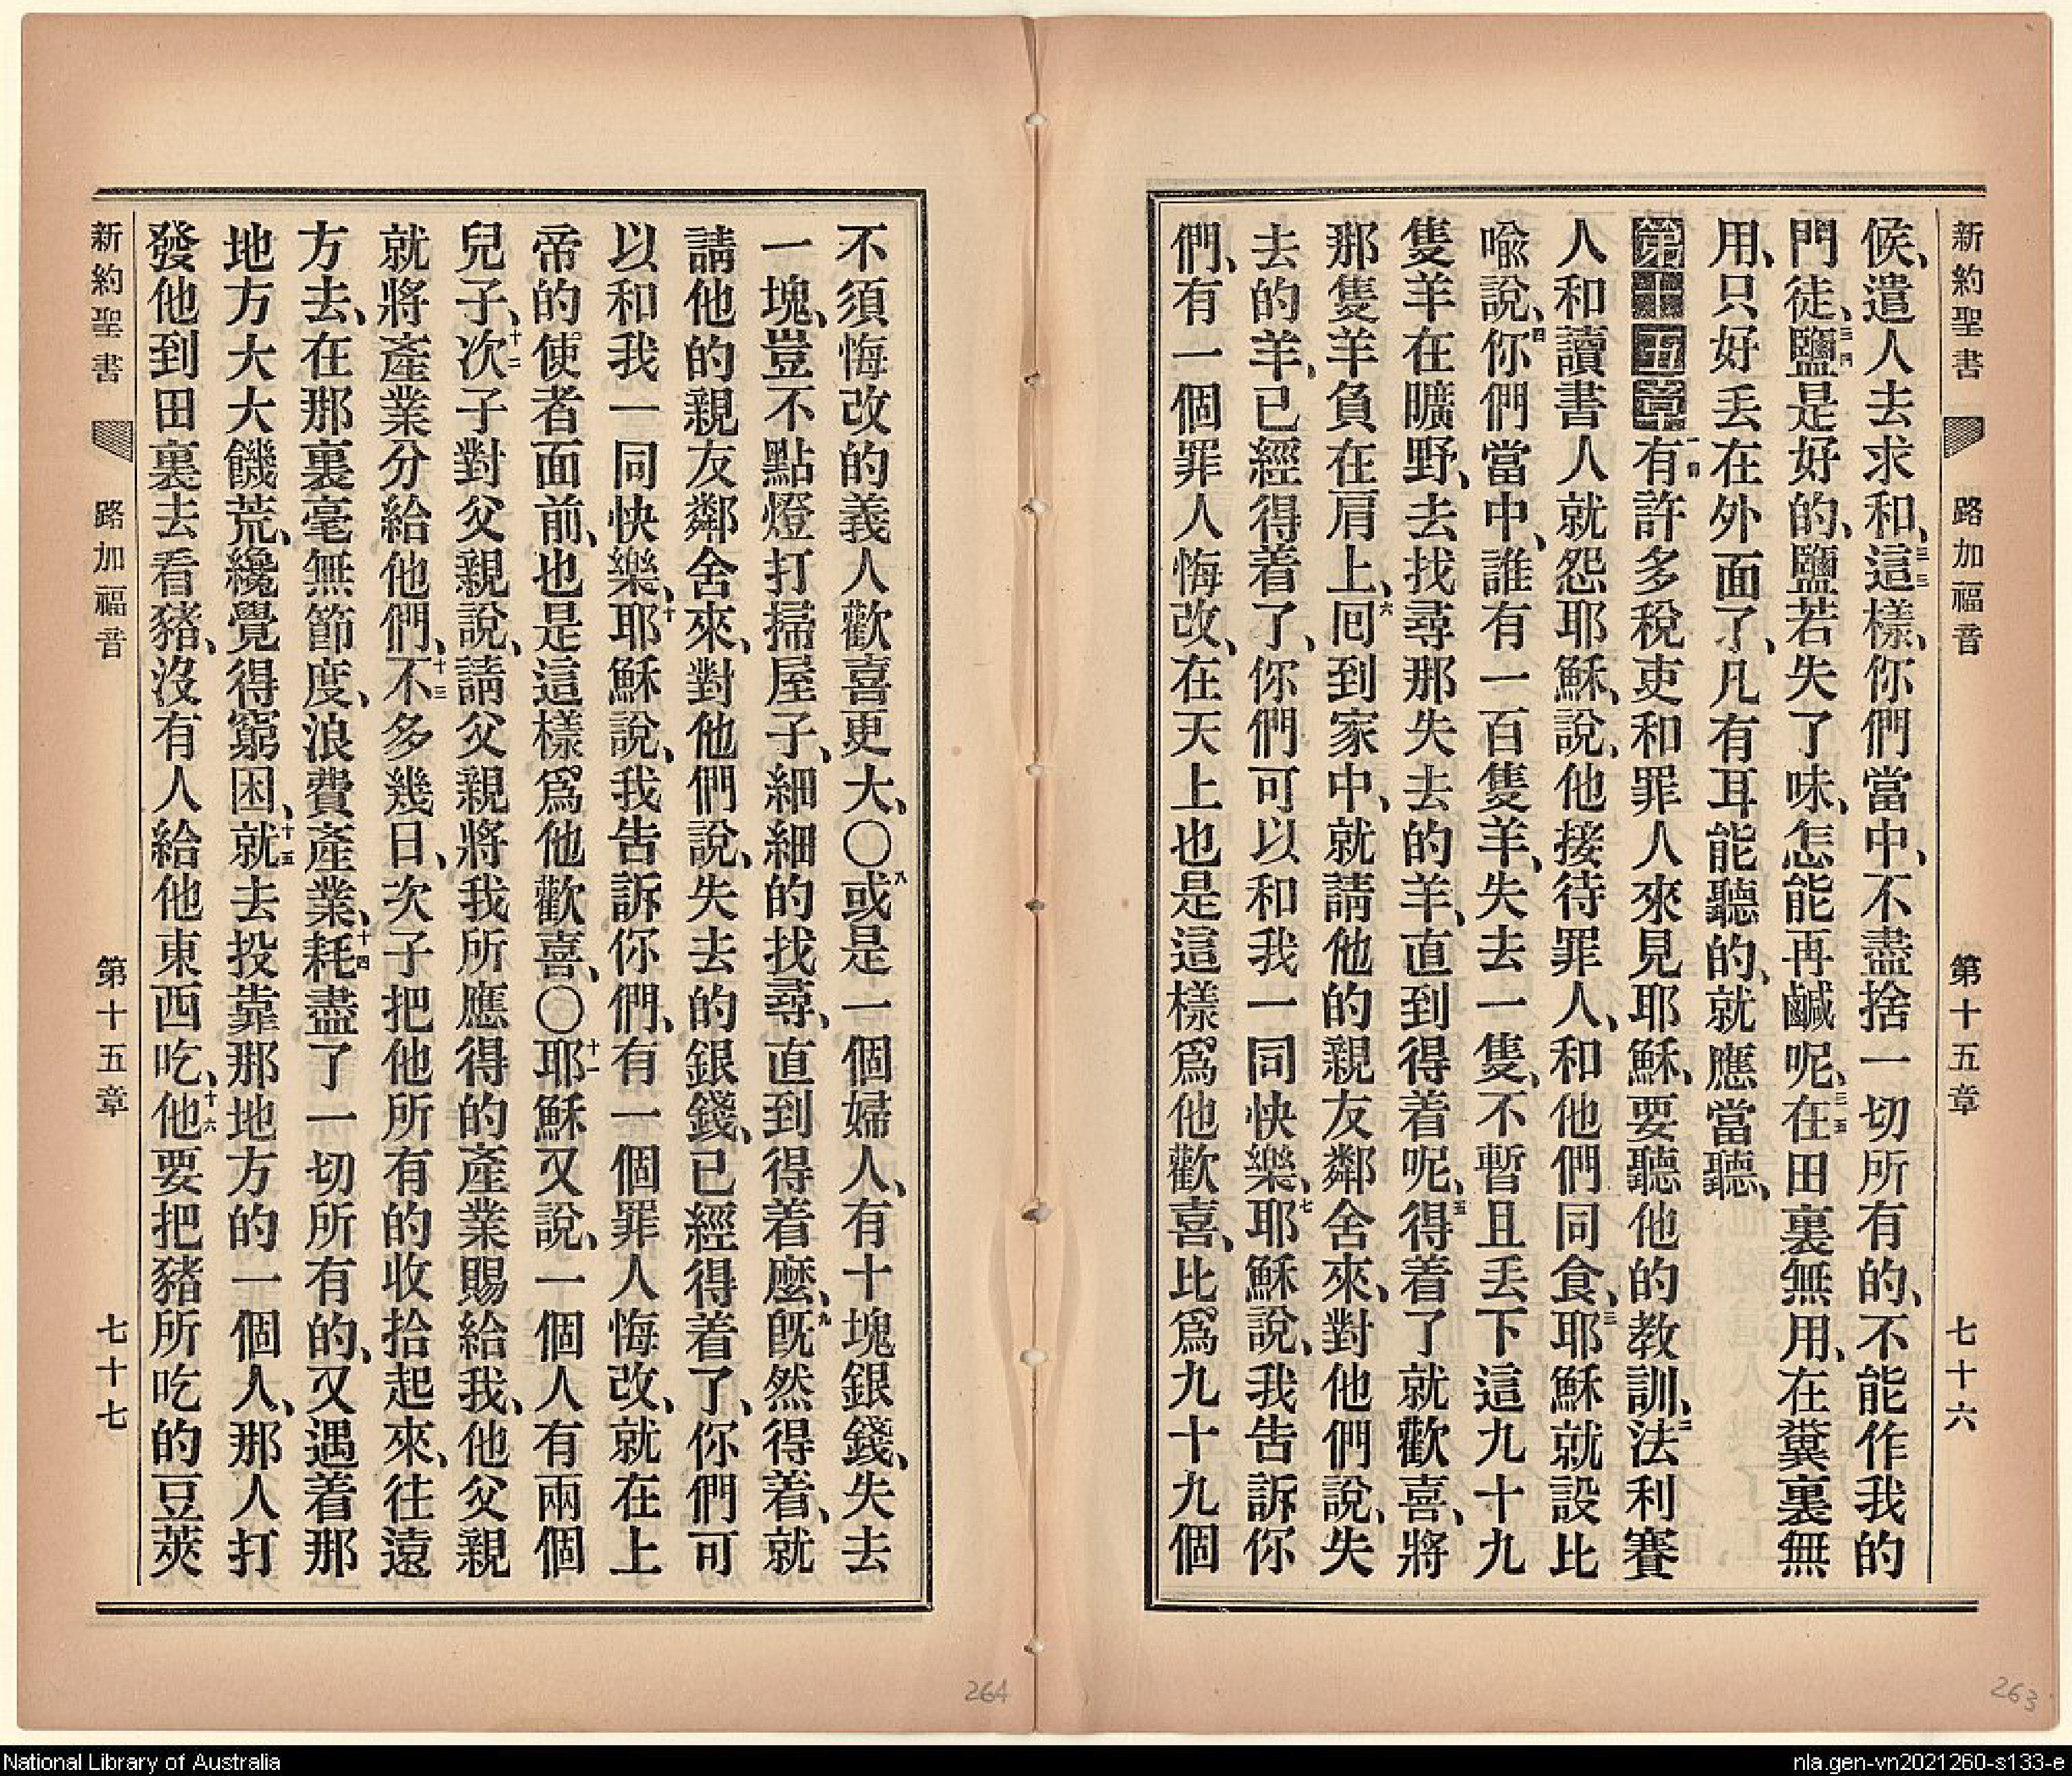 新約聖書 路加福音 第十五章 七十六
候、遣人去求和、三三這樣、你們當中、不盡捨一切所有的、不能作我的
門徒、三四鹽是好的、鹽若失了味、怎能再鹹呢、三五在田裏無用、在糞裏無
用、只好丟在外面了、凡有耳能聽的、就應當聽、
第十五章 一節有許多稅吏和罪人來見耶穌、要聽他的教訓、二法利賽
人和讀書人就怨耶穌、說、他接待罪人、和他們同食、三耶穌就設比
喩說、四你們當中、誰有一百隻羊、失去一隻、不暫且丟下這九十九
隻羊在曠野、去找尋那失去的羊、直到得着呢、五得着了就歡喜、將
那隻羊負在肩上、六囘到家中、就請他的親友鄰舍來、對他們說、失
去的羊、已經得着了、你們可以和我一同快樂、七耶穌說、我告訴你
們、有一個罪人悔改、在天上也是這樣爲他歡喜、比爲九十九個
不須悔改的義人歡喜更大、〇八或是一個婦人、有十塊銀錢、失去
一塊、豈不點燈打掃屋子、細細的找尋、直到得着麼、九旣然得着、就
請他的親友鄰舍來、對他們說、失去的銀錢、已經得着了、你們可
以和我一同快樂、十耶穌說、我告訴你們、有一個罪人悔改、就在上
帝的使者面前、也是這樣爲他歡喜、〇十一耶穌又說、一個人有兩個
兒子、十二次子對父親說、請父親將我所應得的產業賜給我、他父親
就將產業分給他們、十三不多幾日、次子把他所有的收拾起來、往遠
方去、在那裏毫無節度、浪費產業、十四耗盡了一切所有的、又遇着那
地方大大饑荒、纔覺得窮困、十五就去投靠那地方的一個人、那人打
發他到田裏去看豬、沒有人給他東西吃、十六他要把豬所吃的豆莢
新約聖書 路加福音 第十五章 七十七
264
263
National Library of Australia
nla.gen-vn2021260-s133-e